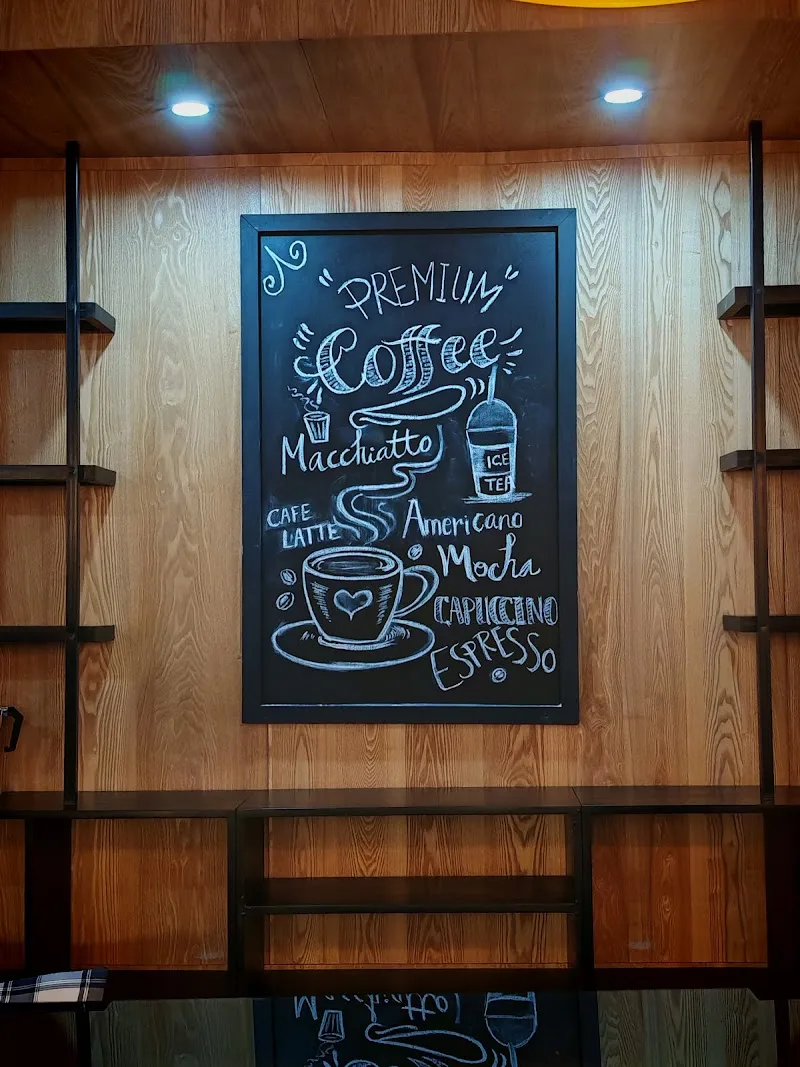 "PREMIUM"
Coffee
Macchiatto
ICE
TEA
CAFE
LATTE
Americano
Mocha
CAPUCCINO
ESPRESSO
Macchiatto